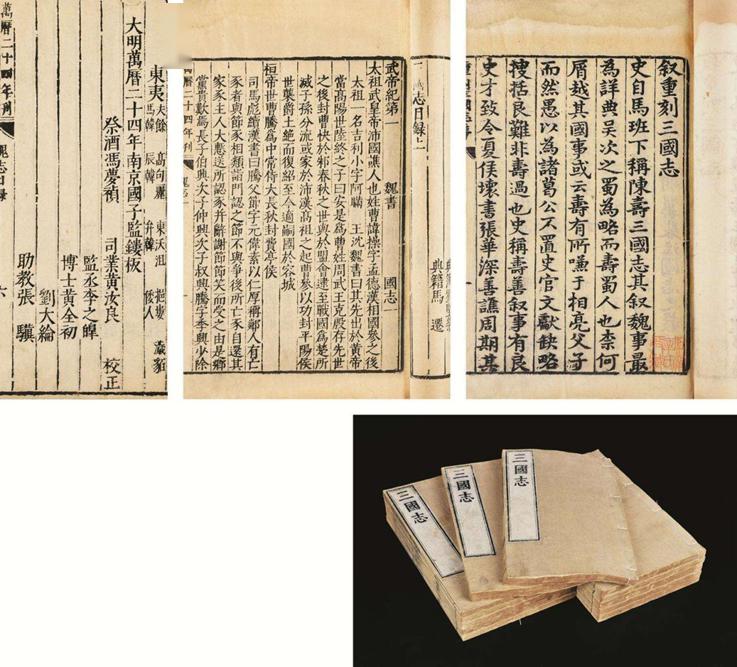 叙重刻三國志
史自馬班下稱陳壽三國志其叙魏事最
為詳典吴次之蜀為略而壽蜀人也柰何
屑越其國事或云壽有所嗛于相亮父子
而然愚以為諸葛公不置史官文獻缺略
捜括良難非壽過也史稱壽善叙事有良
史才致令夏侯壞書張華深善譙周期其
典籍馬 遷
三國志目録上
武帝紀第一 魏書 國志一
太祖武皇帝沛國譙人也姓曹諱操字孟德漢相國參之後
太祖一名吉利小字阿瞞 王沈魏書曰其先出於黄帝
當高陽世陸終之子曰安是為曹姓周武王克殷存先世
之後封曹俠於邾春秋之世與於盟會逮至戰國為楚所
滅子孫分流或家於沛漢高祖之起曹參以功封平陽侯
世襲爵土絶而復紹至今適嗣國於容城
桓帝世曹騰為中常侍大長秋封費亭侯
司馬彪續漢書曰騰父節字元偉素以仁厚稱鄰人有亡
豕者與節豕相類詣門認之節不與爭後所亡豕自還其
家豕主人大慙送所認豕并辭謝節節笑而受之由是鄉
黨貴歎焉長子伯興次子仲興次子叔興騰字季興少除
萬曆二十四年刊 魏志一
東夷 夫餘 高句麗 東沃沮 挹婁 濊貊
馬韓 辰韓 弁韓 倭人
大明萬曆二十四年南京國子監鏤板
祭酒馮夢禎
司業黄汝良 校正
監丞李之皥
博士黄全初
劉大綸
助教張 驥
萬曆二十四年刊 魏志目録 六
三國志
三國志
三國志